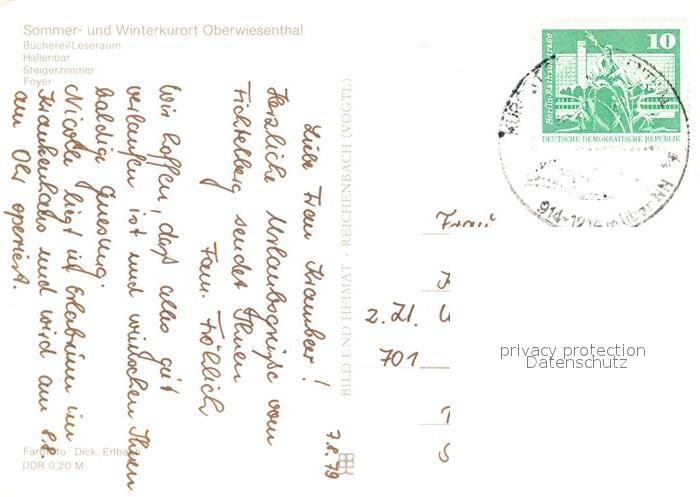 Sommer- und Winterkurort Oberwiesenthal
Bücherei/Leseraum
Hallenbar
Steigerzimmer
Foyer
7.8.79
Liebe Frau Krambeer!
Herzliche Urlaubsgrüße vom
Fichtelberg sendet Ihnen
Fam. Fröhlich
Wir hoffen, daß alles gut
verlaufen ist und wünschen Ihnen
baldige Genesung.
Nicole liegt in Erlabrunn im
Krankenhaus und wird am
am Ohr operiert.
Farbfoto: Dick, Erlbach
DDR 0,20 M
BILD UND HEIMAT · REICHENBACH (VOGTL)
10
Berlin-Rathausstraße
DEUTSCHE DEMOKRATISCHE REPUBLIK
914-1214 m über NN
Frau
2. Zt.
701
privacy protection
Datenschutz